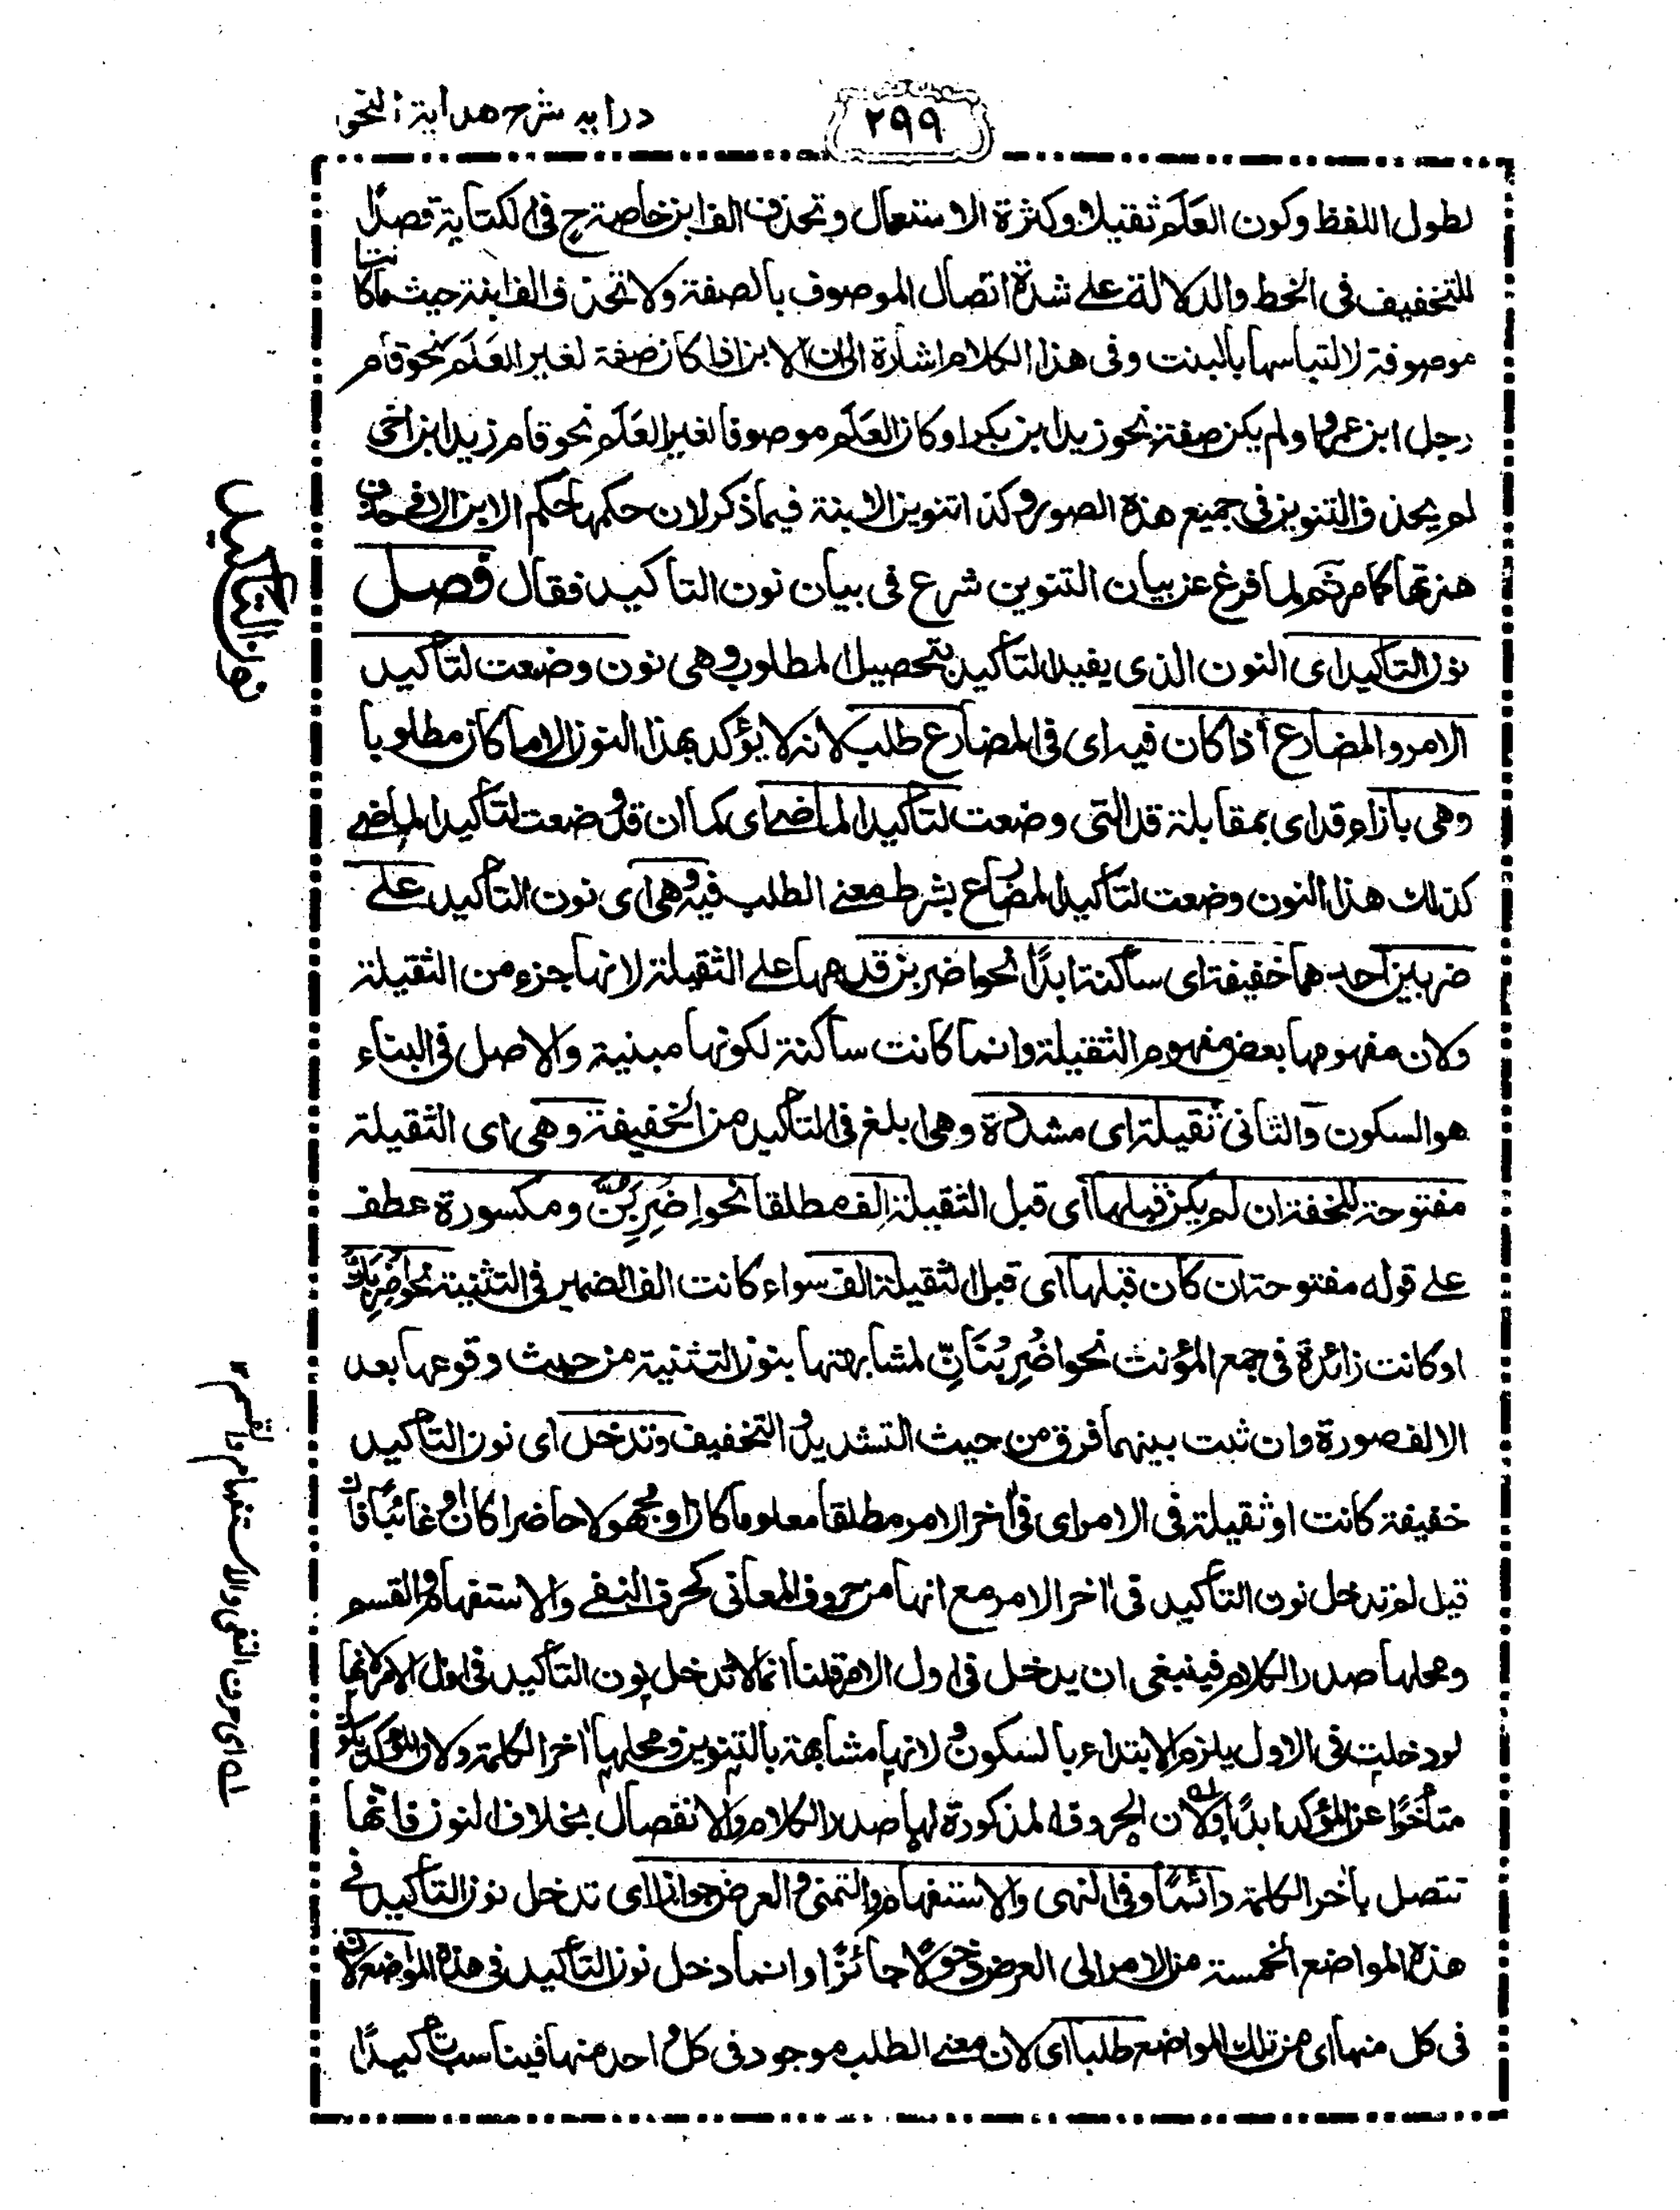 درایه شرح هدایة النحو
۲۹۹
لطول اللفظ وكون العَلَم ثقيلا وكثرة الاستعمال وتحذف الف ابن خاصة ح فى الكتابة قصدًا
للتخفيف فى الخط والدلالة على شدة اتصال الموصوف بالصفة ولا تحذف الف ابنة حيث ما كانت
موصوفة لالتباسها بالبنت وفى هذا الكلام اشارة الى ان الابن اذا كان صفة لغير العَلَم نحو قام
رجل ابن عمرو او لم يكن صفة نحو زيد ابن بكر او كان العَلَم موصوفا لغير العَلَم نحو قام زيد ابن اخى
لم يحذف التنوين فى جميع هذه الصور وكذا تنوين الابنة فيما ذكر لان حكمها حكم الابن الا فى حذف
همزتها كما مر ثم لما فرغ عن بيان التنوين شرع فى بيان نون التاكيد فقال فصل
نون التاكيد اى النون الذى يفيد التاكيد بتحصيل المطلوب وهى نون وضعت لتأكيد
الامر والمضارع اذا كان فيه اى فى المضارع طلب لانه لا يؤكد بهذا النون الا ما كان مطلوبا
وهى بازاء قد اى بمقابلة قد التى وضعت لتاكيد الماضى اى كما ان قد وضعت لتاكيد الماضے
كذلك هذا النون وضعت لتأكيد المضارع بشرط معنے الطلب فيه وهى اى نون التأكيد علے
ضربين احدهما خفيفة اى ساكنة ابدًا نحو اضربن قدمها على الثقيلة لانها جزء من الثقيلة
ولان مفهومها بعض مفهوم الثقيلة وانما كانت ساكنة لكونها مبنية والاصل فى البناء
هو السكون والثانى ثقيلة اى مشددة وهى ابلغ فى التأكيد من الخفيفة وهى اى الثقيلة
مفتوحة للخفة ان لم يكن قبلها اى قبل الثقيلة الف مطلقا نحو اِضْرِبَنَّ ومكسورة عطف
علے قوله مفتوحة ان كان قبلها اى قبل الثقيلة الف سواء كانت الف الضمير فى التثنية نحو اضْرِبَانِّ
او كانت زائدة فى جمع المؤنث نحو اضْرِبْنَانِّ لمشابهتها بنون التثنية من حيث وقوعها بعد
الالف صورة وان ثبت بينهما فرق من حيث التشديد والتخفيف وتدخل اى نون التأكيد
خفيفة كانت او ثقيلة فى الامر اى فى اٰخر الامر مطلقا معلوما كان او مجهولا حاضرا كان او غائبًا فان
قيل لم تدخل نون التأكيد فى اٰخر الامر مع انها من حروف المعانى كحرف النفے والاستفهام والقسم
ومحلها صدر الكلام فينبغى ان يدخل فى اول الامر قلنا انما لا تدخل نون التأكيد فى اول الامر لانها
لو دخلت فى الاول يلزم الابتداء بالسكون ولانها مشابهة بالتنوين ومحلها اٰخر الكلمة ولان المؤكد يكون
متأخرًا عن المؤكد ابدًا ولان الحروف المذكورة لها صدر الكلام والانفصال بخلاف النون فانها
تتصل باٰخر الكلمة دائمًا وفى النهى والاستفهام والتمنى والعرض جوازا اى تدخل نون التأكيد فے
هذه المواضع الخمسة من الامر الى العرض دخولًا جائزًا وانما دخل نون التأكيد فى هذه المواضع لان
فى كل منها اى من تلك المواضع طلبا اى لان معنے الطلب موجود فى كل واحد منها فيناسب تأكيدًا
نون التاکید
له اى حرف النفى والاستفهام والقسم